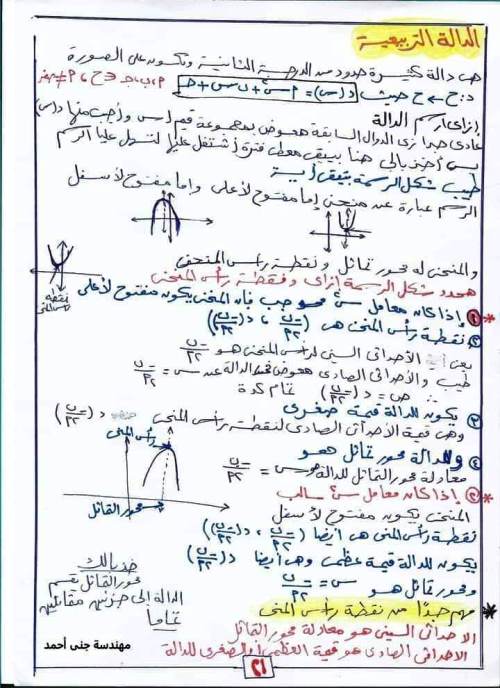 الدالة التربيعية
هى دالة كثيرة حدود من الدرجة الثانية وتكون على الصورة
د: ح ← ح حيث د(س) = أس² + ب س + جـ ، أ، ب، جـ ∈ ح ، أ ≠ صفر
إزاى أرسم الدالة
عادى جدا زى الدوال السابقة هعوض بمجموعة قيم لـ س وأجيب منها د(س)
بس أخد بالى هنا بيبقى معطى فترة أشتغل عليها لتسهل عليا الرسم
طيب شكل الرسمة بتبقى أية
الرسم عبارة عن منحنى إما مفتوح لأعلى وإما مفتوح لأسفل
والمنحنى له محور تماثل ونقطة رأس المنحنى
هحدد شكل الرسمة إزاى ونقطة رأس المنحنى
نقطة رأس المنحنى
* ① إذا كان معامل س² موجب فإن المنحنى يكون مفتوح لأعلى
② نقطة رأس المنحنى هى (-ب/٢أ ، د(-ب/٢أ))
يعنى الأحداثى السينى لرأس المنحنى هو -ب/٢أ
طيب والأحداثى الصادى هعوض فى الدالة عن س = -ب/٢أ
∴ ص = د(-ب/٢أ) تمام كدة
③ يكون للدالة قيمة صغرى
وهى قيمة الأحداثى الصادى لنقطة رأس المنحنى د(-ب/٢أ)
رأس المنحنى
④ وللدالة محور تماثل هو
معادلة محور التماثل للدالة هو س = -ب/٢أ
محور التماثل
* ② إذا كان معامل س² سالب
المنحنى يكون مفتوح لأسفل
نقطة رأس المنحنى هى أيضا (-ب/٢أ ، د(-ب/٢أ))
يكون للدالة قيمة عظمى وهى أيضا د(-ب/٢أ)
ومحور تماثل هو س = -ب/٢أ
خد بالك
محور التماثل يقسم
الدالة إلى جزئين متماثلين
تماما
* مهم جدًا من نقطة رأس المنحنى
الاحداثى السينى هو معادلة محور التماثل
الاحداثى الصادى هو قيمة العظمى أو الصغرى للدالة
مهندسة جنى أحمد
٢١